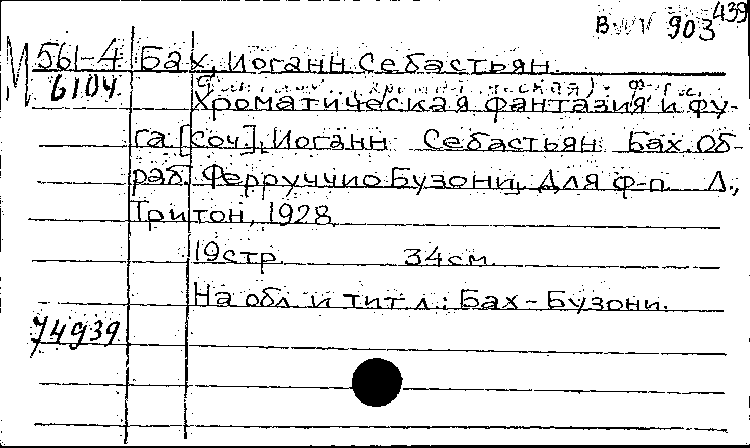 439
BWV 903
М 561-4 Бах, Иоганн Себастьян.
6104
Хроматическая фантазия и фу-
га [соч.], Иоганн Себастьян Бах. Об-
раб. Ферруччио Бузони, Для ф-п. Л.,
Тритон, 1928.
19 стр. 34 см.
На обл. и тит. л.: Бах - Бузони.
74939